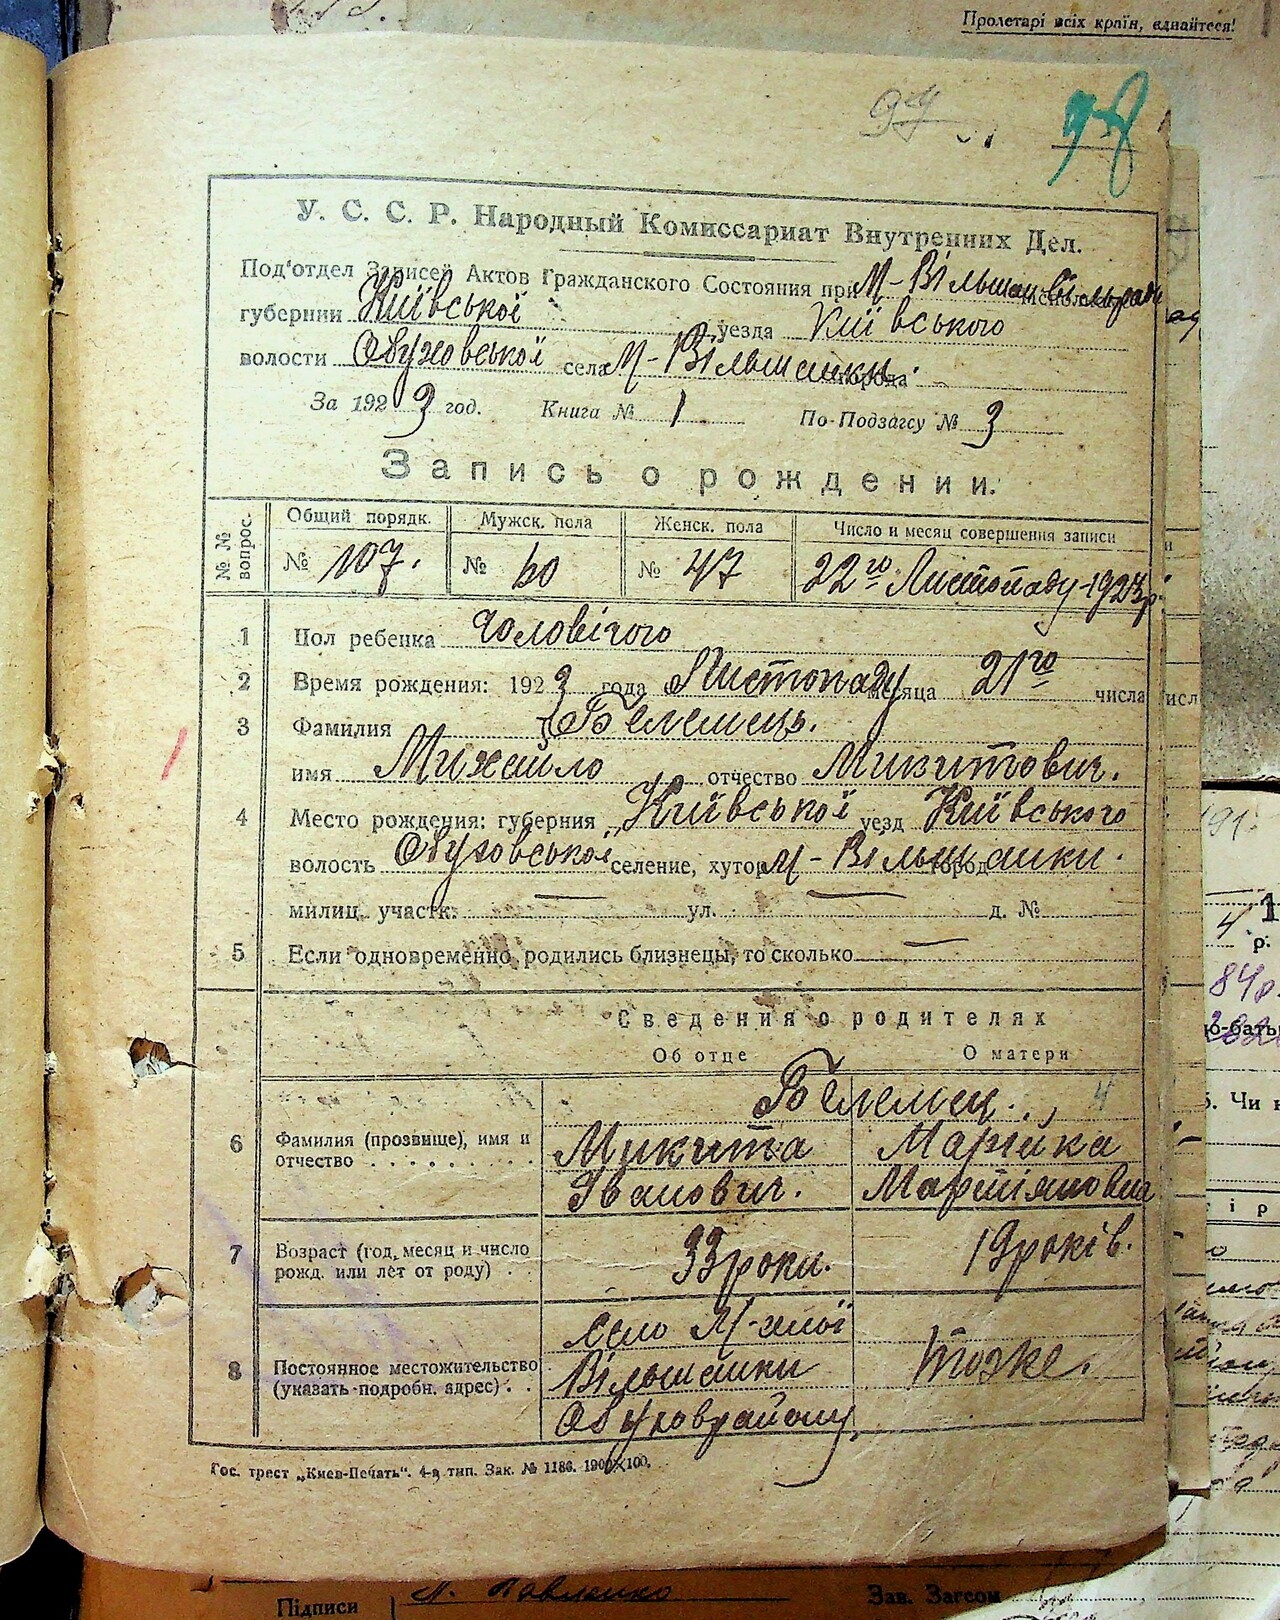 Пролетарі всіх країн, єднайтеся!
94
98
У. С. С. Р. Народный Комиссариат Внутренних Дел.
Под'отдел Записей Актов Гражданского Состояния при М-Вільшан.
губернии Київської уезда Київського
волости Обуховської села М-Вільшанки города
За 1923 год. Книга № 1 По-Подзагсу № 3
Запись о рождении.
№ № вопрос.
Общий порядк. Мужск. пола Женск. пола Число и месяц совершения записи
№ 107. № 60 № 47 22го Листопаду 1923р.
1 Пол ребенка Чоловічого
2 Время рождения: 1923 года Листопаду месяца 21го числа
3 Фамилия Белемець.
имя Михайло отчество Микитович.
4 Место рождения: губерния Київської уезд Київського
волость Обуховської селение, хутор М-Вільшанки. город
милиц. участк. — ул. — д. №
5 Если одновременно родились близнецы, то сколько —
Сведения о родителях
Об отце О матери
Белемец.
6 Фамилия (прозвище), имя и отчество Микита Марійка
Іванович. Мартіяновна
7 Возраст (год, месяц и число рожд. или лет от роду) 33 роки. 19 років.
8 Постоянное местожительство (указать подробн. адрес) село М-лої
Вільшанки тоже.
Обуховрайону
Гос. трест „Киев-Печать". 4-я тип. Зак. № 1186. 1900×100.
Підписи Павленко Зав. Загсом